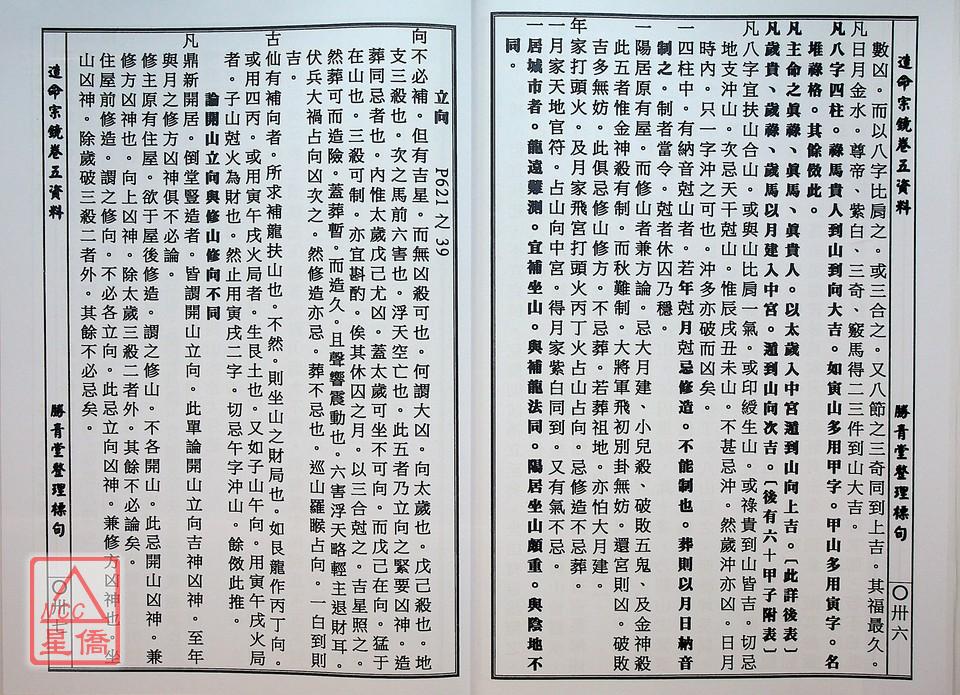 造命宗鏡卷五資料
勝青堂整理標句
〇卅六
數凶。而以八字比肩之。或三合之。又八節之三奇同到上吉。其福最久。
凡日月金水。尊帝、紫白、三奇、竅馬得二三件到山大吉。
凡八字四柱。祿馬貴人到山到向大吉。如寅山多用甲字。甲山多用寅字。名
堆祿格。其餘倣此。
凡主命之眞祿、眞馬、眞貴人。以太歲入中宮遁到山向上吉。〔此詳後表〕
凡歲貴、歲祿、歲馬以月建入中宮。遁到山向次吉。〔後有六十甲子附表〕
凡八字宜扶山合山。或與山比肩一氣。或印綬生山。或祿貴到山皆吉。切忌
地支沖山。次忌天干尅山。惟辰戌丑未山。不甚忌沖。然歲沖亦凶。日月
時內。只一字沖之可也。沖多亦破而凶矣。
一四柱中。有納音尅山者。若年尅月尅忌修造。不能制也。葬則以月日納音
制之。制者當令。尅者休囚乃穩。
一陽居原有屋。而修山者兼方論。忌大月建、小兒殺、破敗五鬼、及金神殺
此五者惟金神殺有制。而秋難制。大將軍飛初別卦無妨。還宮則凶。破敗
吉多無妨。此俱忌修山修方。不忌葬。若葬祖地。亦怕大月建。
年家打頭火。及月家飛宮打頭火丙丁火占山占向。忌修造不忌葬。
一月家天地官符。占山向中宮。得月家紫白同到。又有氣不忌。
一居城市者。龍遠難測。宜補坐山。與補龍法同。陽居坐山頗重。與陰地不
同。
立向 P621之39
向不必補。但有吉星。而無凶殺可也。何謂大凶。向太歲也。戊己殺也。地
支三殺也。次之馬前六害也。浮天空亡也。此五者乃立向之緊要凶神。造
葬同忌者也。內惟太歲戊己尤凶。蓋太歲可坐不可向。而戊己在向。猛于
在山也。三殺可制。亦宜斟酌。俟其休囚之月。以三合尅之。吉星照之。
然葬可而造險。蓋葬暫。而造久。且聲響震動也。六害浮天略輕主退財耳。
伏兵大禍占向凶次之。然修造亦忌。葬不忌也。巡山羅睺占向。一白到則
吉。
古仙有補向者。所求補龍扶山也。不然。則坐山之財局也。如艮龍作丙丁向。
或用四丙。或用寅午戌火局者。生艮土也。又如子山午向。用寅午戌火局
者。子山尅火為財也。然止用寅戌二字。切忌午字沖山。餘倣此推。
論開山立向與修山修向不同
凡鼎新開居。倒堂豎造者。皆謂開山立向。此單論開山立向吉神凶神。至年
與月之修方凶神俱不必論。
修主原有住屋。欲于屋後修造。謂之修山。不各開山。此忌開山凶神。兼
修方凶神也。向上凶神。除太歲三殺二者外。其餘不必論矣。
住屋前修造。謂之修向。不必各立向。此忌立向凶神。兼修方凶神也。坐
山凶神。除歲破三殺二者外。其餘不必忌矣。
造命宗鏡卷五資料
勝青堂整理標句
〇卅七
NCC
星僑